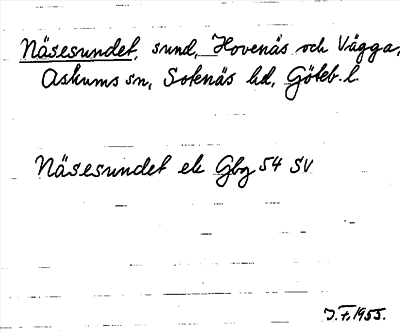 Näsesundet, sund, Hovenäs och Vägga,
Askums sn, Sotenäs hd, Göteb. l.
Näsesundet ek Gbg 54 SV
J. F. 1955.